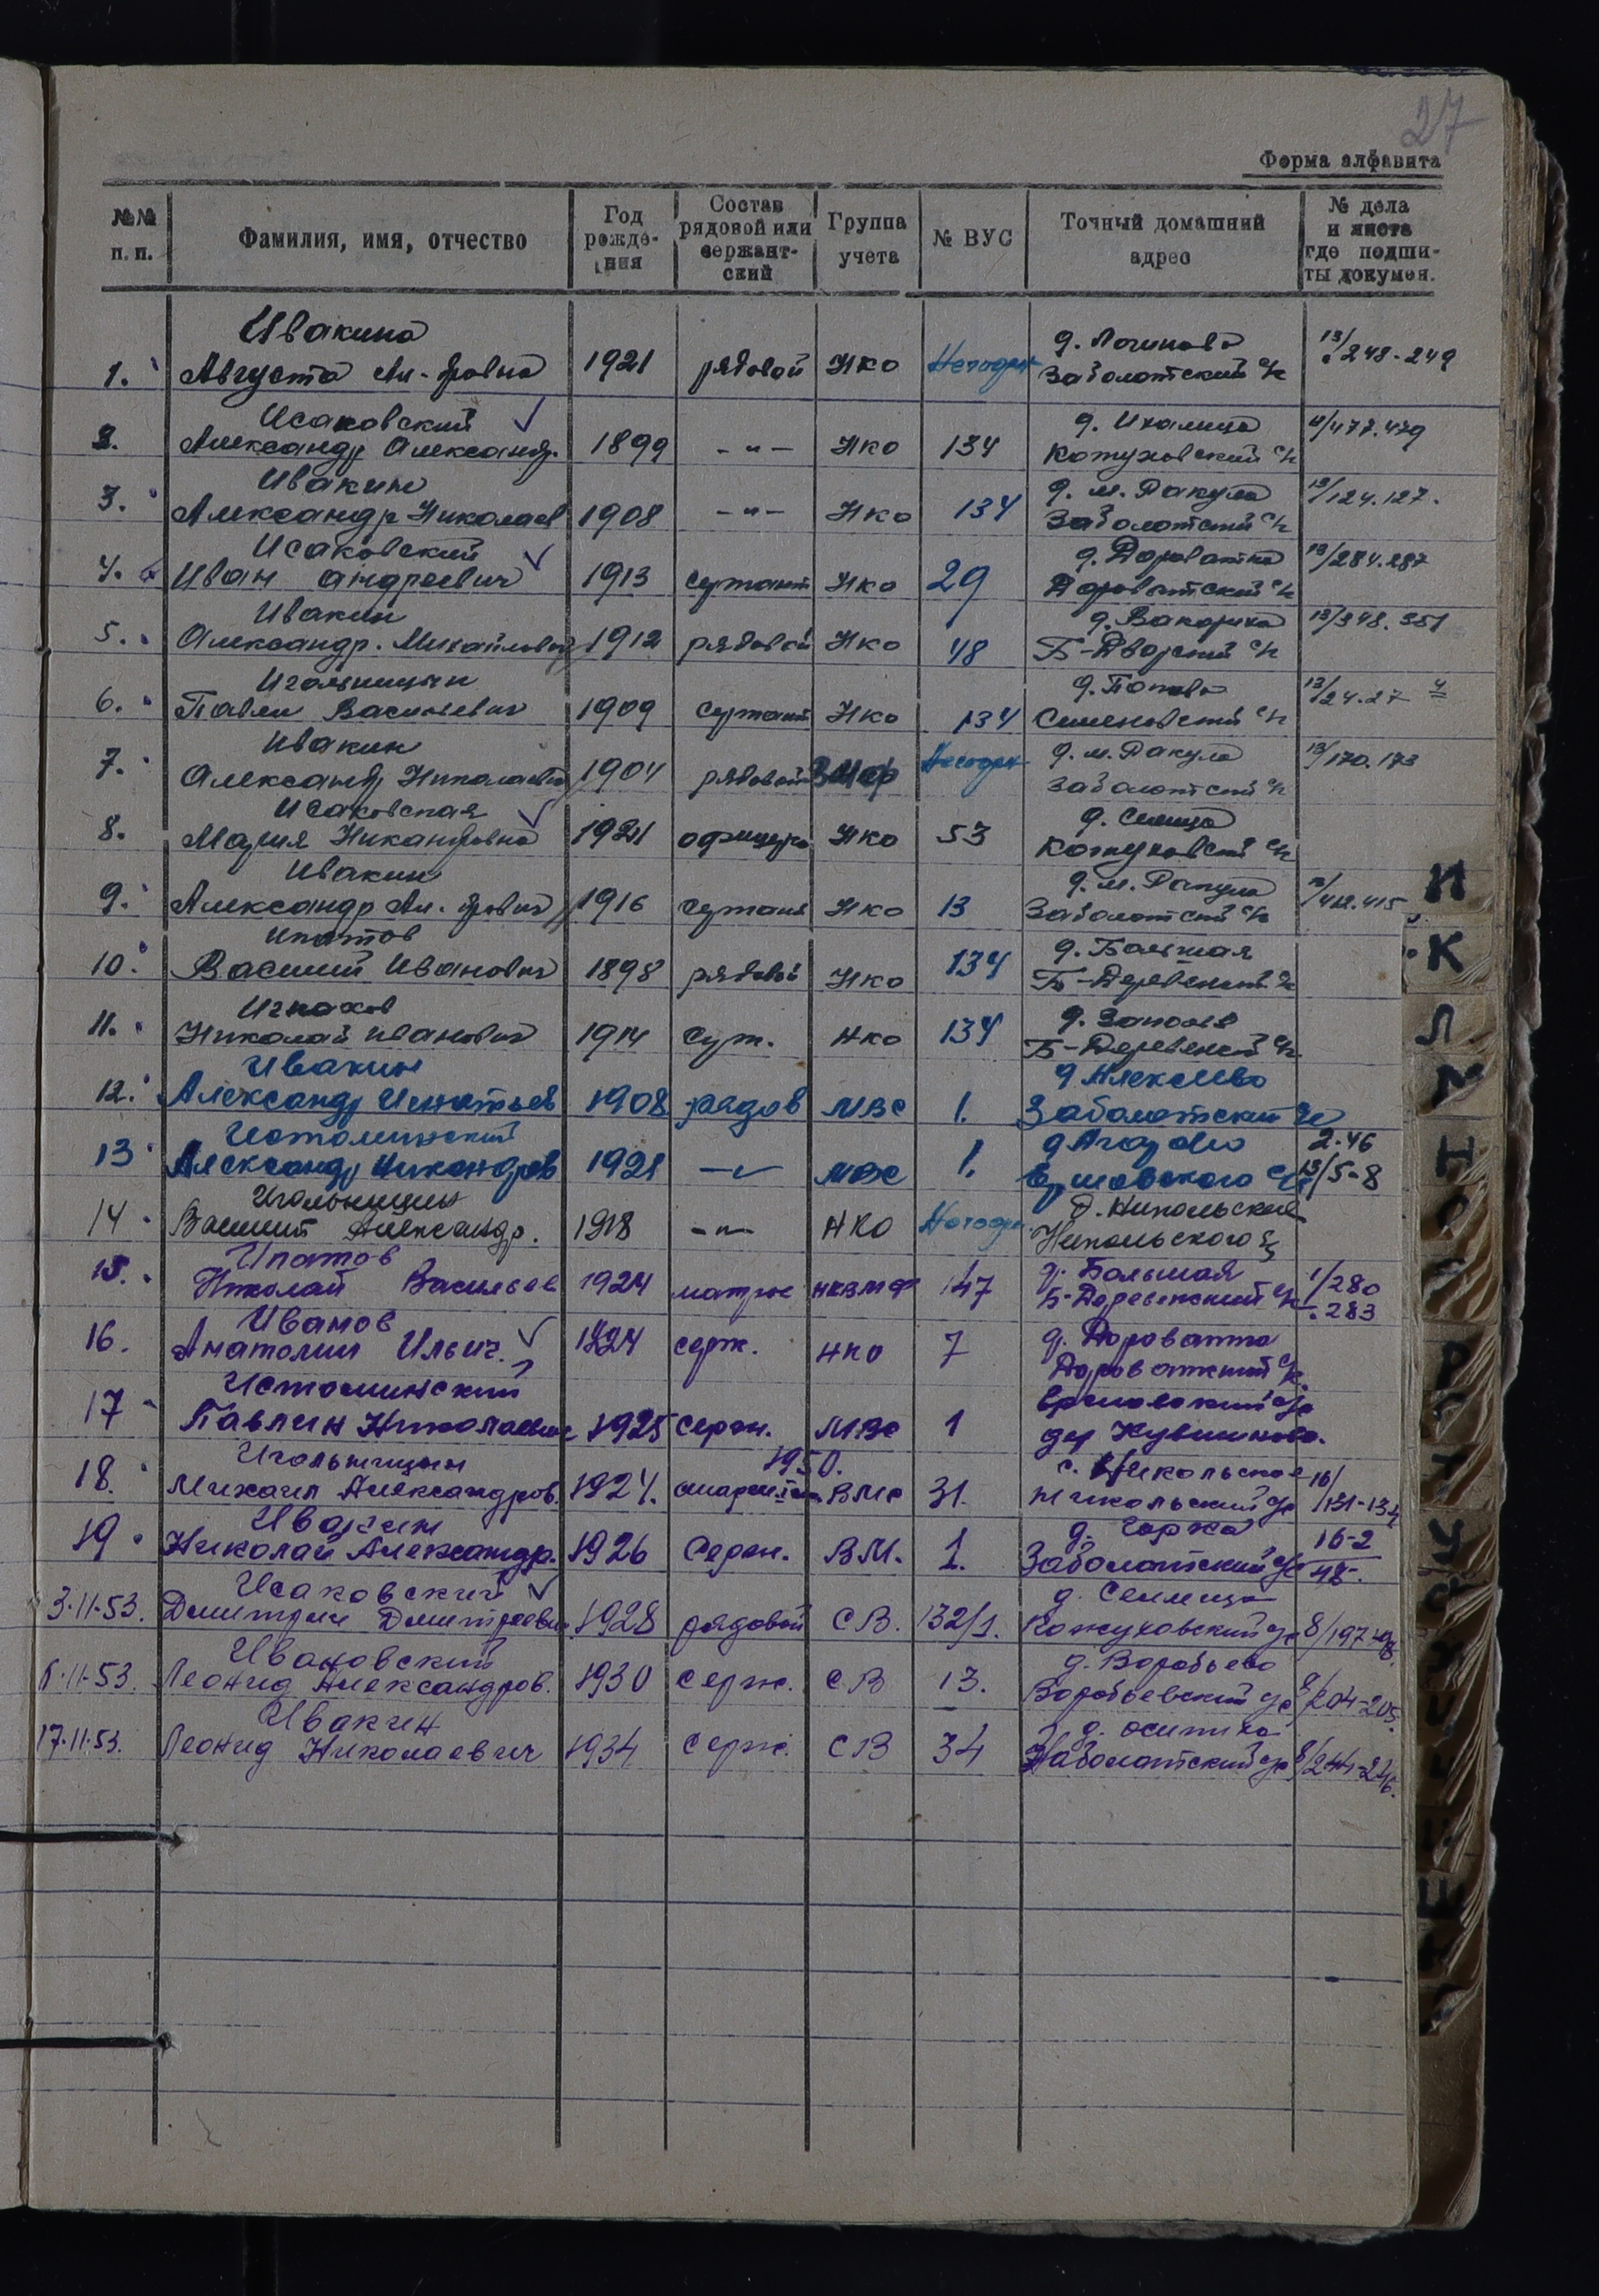 27
Форма алфавита
№№ п. п. Фамилия, имя, отчество Год рожде-ния Состав рядовой или сержант-ский Группа учета № ВУС Точный домашний адрес № дела и листа где подши-ты докумен.
Ивакина д. Починово 13/248-249
1. Августа Ал-дровна 1921 рядовой НКО Негодн Заболотский с/с
Исаковский
2. Александр Александр. 1899 -"- НКО 134 Кожуховский с/с 477.479
Ивакин д. м. Ракула 13/124.127.
3. Александр Николаев 1908 -"- НКО 134 Заболотский с/с
Исаковский д. Дороватка 13/284.287
4. Иван Андреевич 1913 сержант НКО 29 Дороватский с/с
Ивакин 13/348.351
5. Александр. Михайлович 1912 рядовой НКО 48 Б-Дворский с/с
Игольницын д. Попово 13/24.27
6. Павел Васильевич 1909 сержант НКО 134 Семеновский с/с
Ивакин д. м. Ракула 13/170.173
7. Александр Николаевич 1904 рядовой Негодн Заболотский с/с
Исаковская д. Селища
8. Мария Никандровна 1921 НКО 53 Кожуховский с/с
Ивакин д. м. Ракула 13/412.415
9. Александр Ал. дрович 1916 сержант НКО 13 Заболотский с/с
Ипатов д. Большая
10. Василий Иванович 1898 рядовой НКО 134 Б-Деревенский с/с
11. Николай Иванович 1914 серж. НКО 134 Б-Деревенский с/с
Ивакин д Алексеево
12. Александр Игнатьев 1908 рядов МВС 1. Заболотский с/с
Истоминский 2-46
13 Александр Никандров 1921 -"- МВС 1. Ершовского с/с 13/5-8
Игольницын д. Никольское
14. Василий Александр. 1918 -"- НКО Негодн. Никольского с/с
Ипатов д. Большая 1/280
15. Николай Васильев 1924 матрос НКВМФ 147 Б-Деревенский с/с 283
Иванов д. Дороватка
16. Анатолий Ильич. 1924 серж. НКО 7 Дороватский с/с
Истоминский Ершовский с/с
17 Павлин Николаевич 1925 серж. МВС 1 дер Кувшиново.
Игольницын 1950. с. Никольское 16/
18. Михаил Александров. 1924. ВМС 31. Никольский с/с 131-134
Ивакин д. Горка 16-2
19. Николай Александр. 1926 Серж. ВМ. 1. Заболотский с/с 48-
Исаковский д. Селища
3-11-53. Дмитрий Дмитриевич 1928 рядовой СВ. 132/1. Кожуховский с/с 8/197-
Ивановский д. Воробьево
11-53. Леонид Александров. 1930 серж. СВ 13. Воробьевский с/с 204-205.
Ивакин д. Осетиха
17-11-53. Леонид Николаевич 1934 серж. СВ 34 Заболотский с/с 8/244-246.
И
К
Л
Н